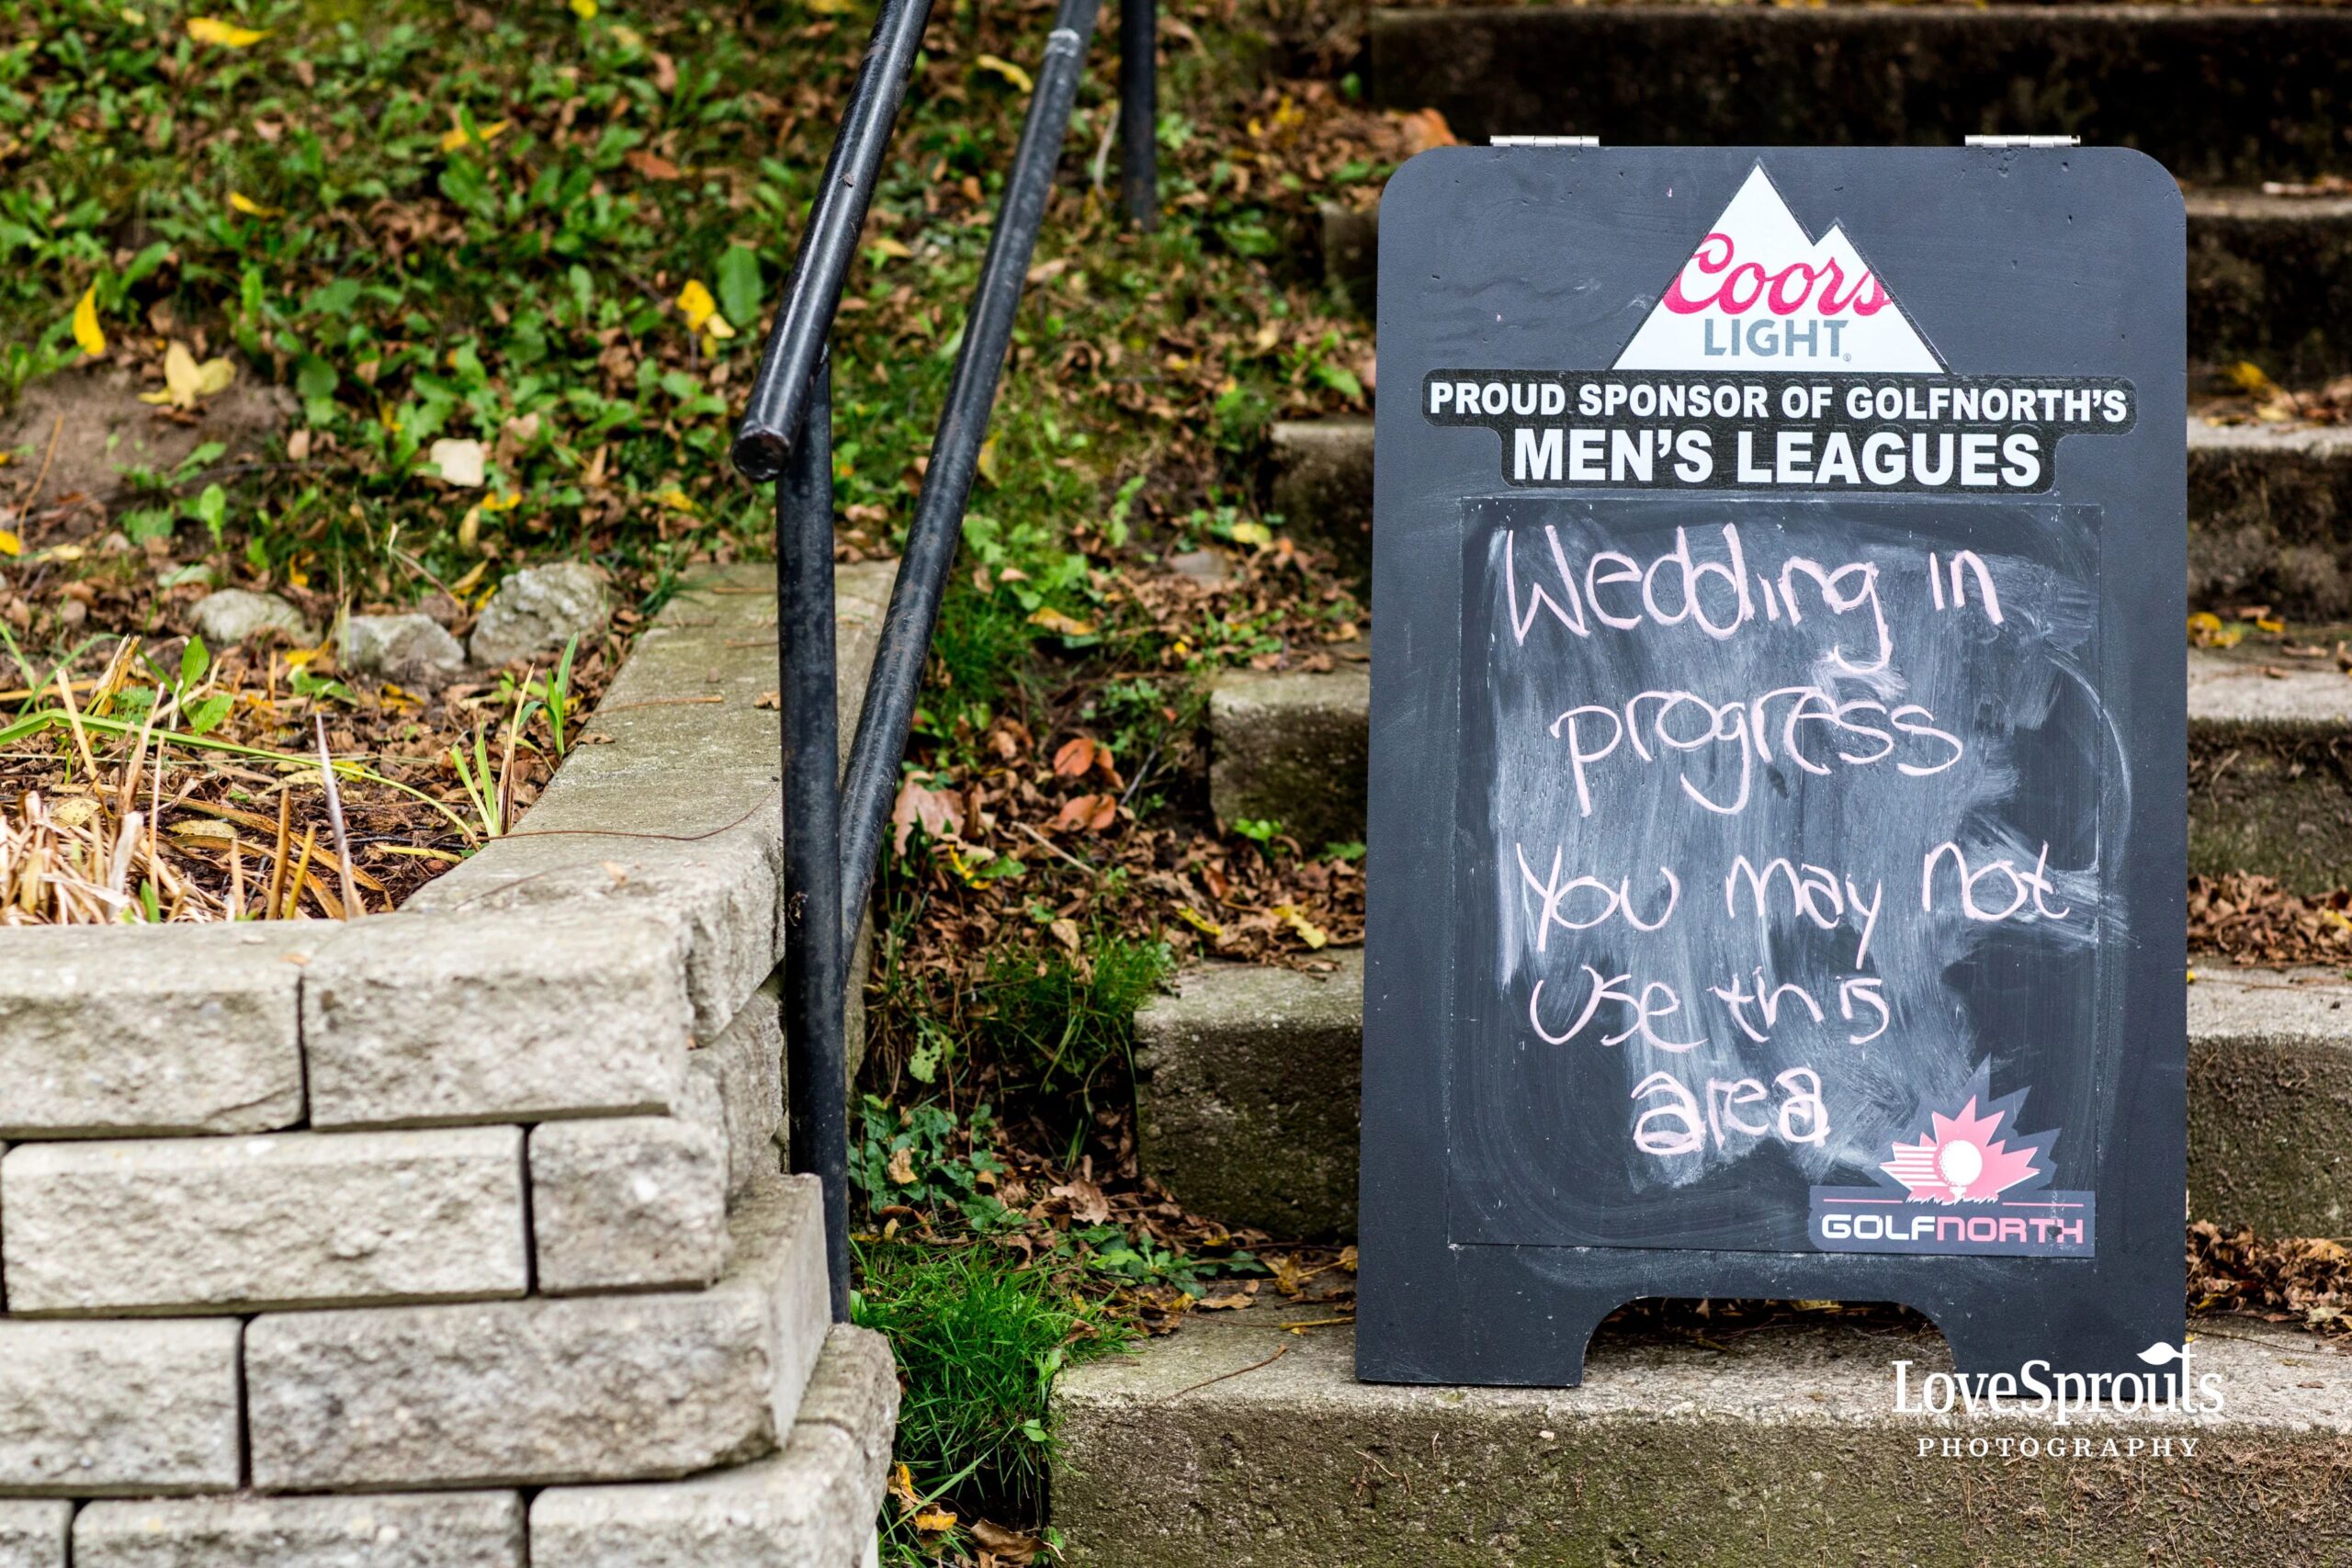 Coors
LIGHT
PROUD SPONSOR OF GOLFNORTH'S
MEN'S LEAGUES
Wedding in
progress
You may not
use this
area
GOLFNORTH
LoveSprouts
PHOTOGRAPHY